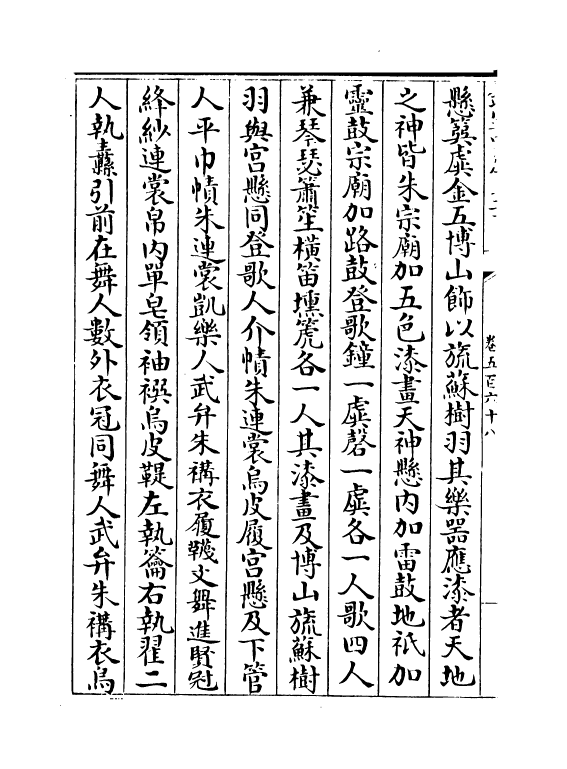 卷五百六十八
懸簨虡金五博山飾以旒蘇樹羽其樂器應漆者天地
之神皆朱宗廟加五色漆畫天神懸内加雷鼓地祇加
靈鼓宗廟加路鼓登歌鐘一虡磬一虡各一人歌四人
兼琴瑟簫笙横笛壎箎各一人其漆畫及博山旒蘇樹
羽與宫懸同登歌人介幘朱連裳烏皮履宫懸及下管
人平巾幘朱連裳凱樂人武弁朱褠衣履韈文舞進賢冠
絳紗連裳帛内單皂領袖襈烏皮鞮左執籥右執翟二
人執纛引前在舞人數外衣冠同舞人武弁朱褠衣烏